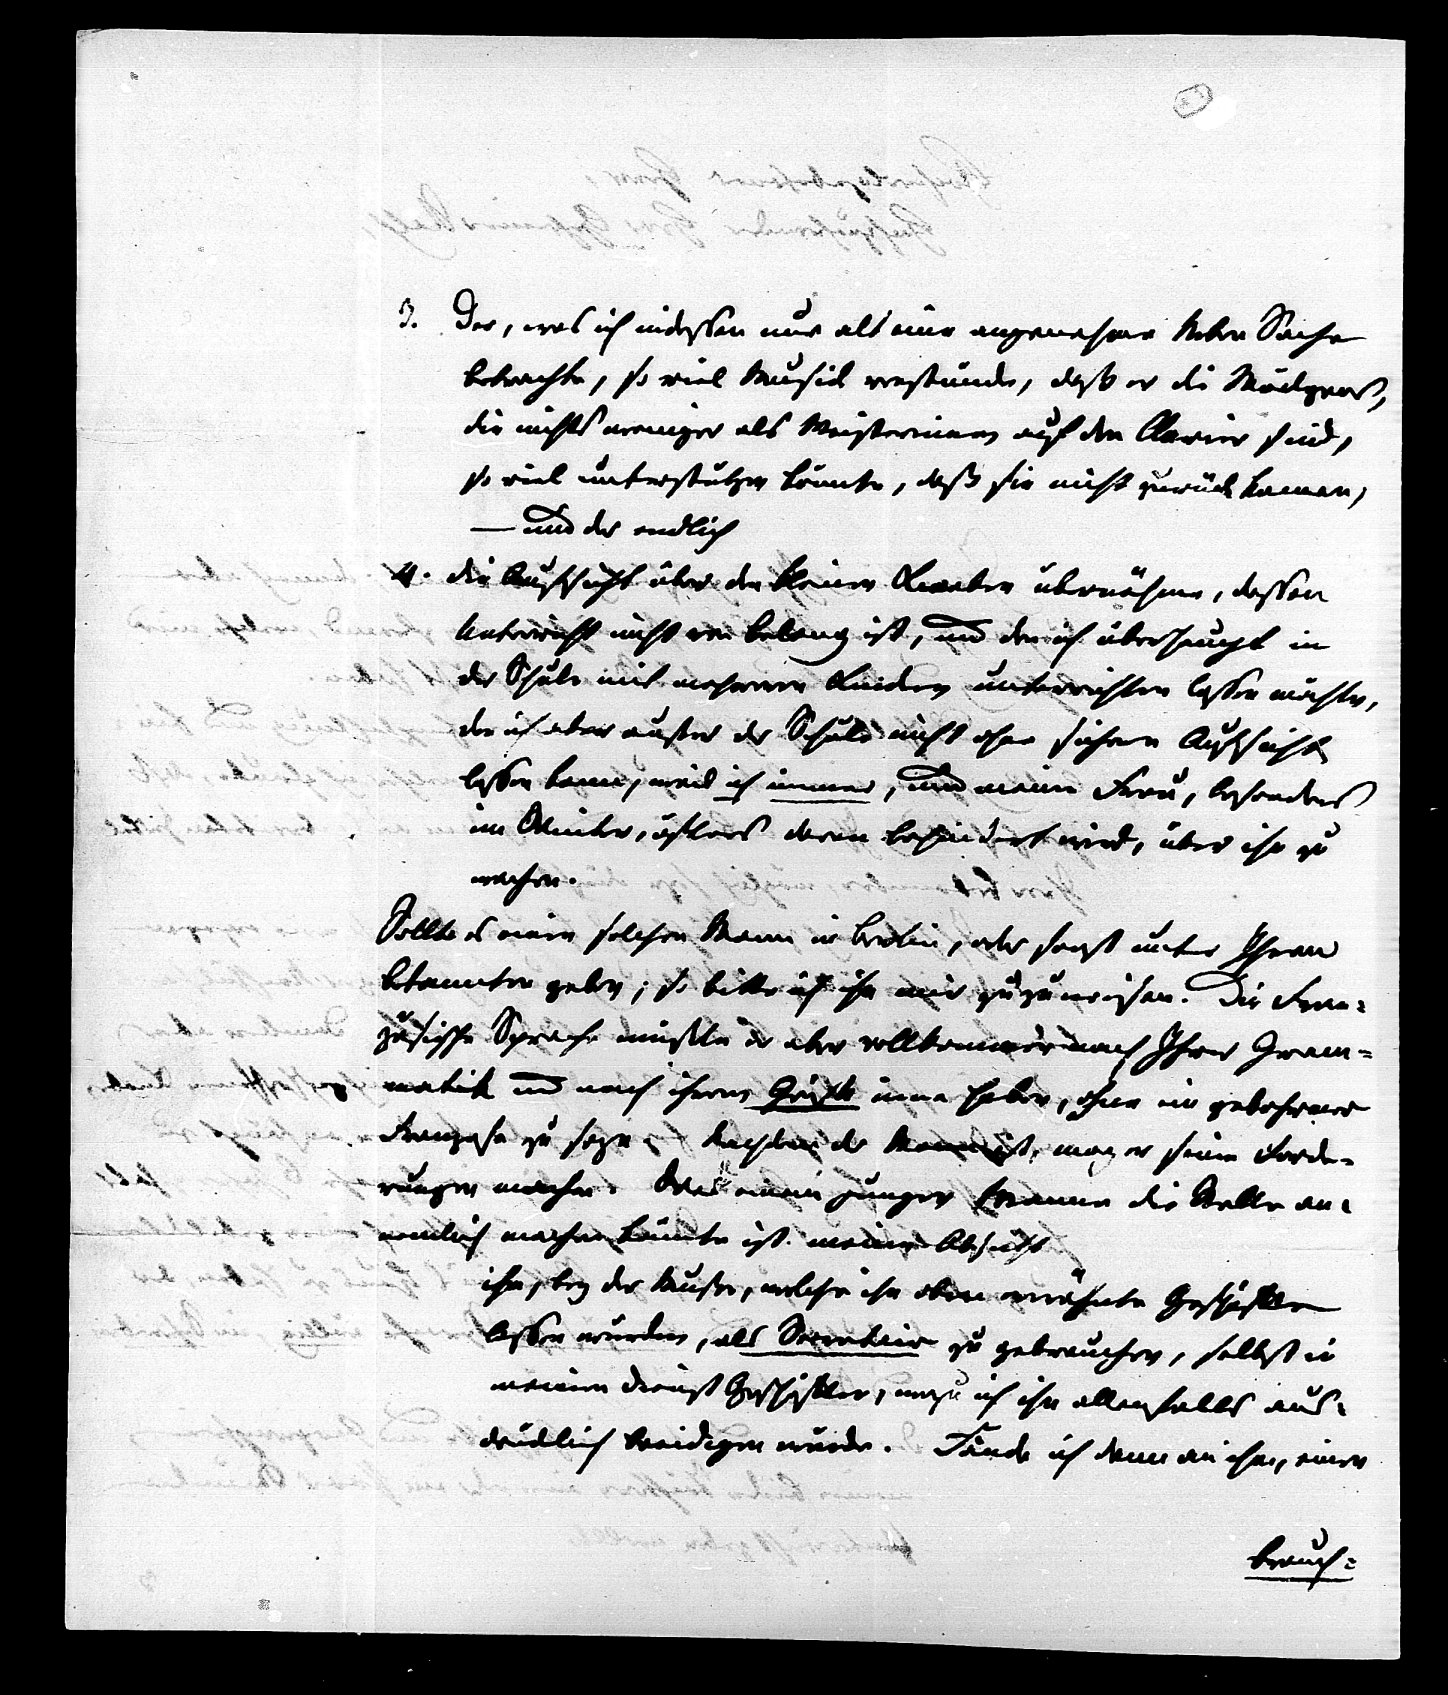 3. Der, was ich indessen nur als eine angenehme Neben Sache
betrachte, so viel Musick verstünde, daß er die Mädgens,
die nichts weniger als Meisterinnen auf dem Clavier sind,
so viel unterstützen könnte, daß sie nicht zurück kämen,
— und der endlich
4. die Aufsicht über den kleinen Knaben übernähme, dessen
Unterricht nicht von Belang ist, und den ich überhaupt in
der Schule mit mehreren Kindern unterrichten lassen möchte,
den ich aber außer der Schule nicht ohne sichere Aufsicht
lassen kann, weil ich immer, und meine Frau, besonders
im Winter, öfters daran behindert wird, über ihn zu
wachen.
Sollte es einen solchen Mann in Berlin, oder sonst unter Ihren
bekannten geben; so bitte ich ihn mir zuzuweisen. Die Fran=
zösische Sprache müßte er aber vollkommen nach Ihrer Gram=
matik und nach ihrem Geiste inne haben, ohne ein gebohrner
Franzose zu seyn. Nachdem der Mann ist, mag er seine Forde=
rungen machen. Was einem jungen Manne die Stelle an=
nemlich machen könnte ist meine Absicht
ihn, bey der Muße, welche ihm oben erwähnte Geschäfte
lassen würden, als Secretair zu gebrauchen, selbst in
meinen Dienst Geschäften, wozu ich ihn allenfalls aus=
drücklich beeidigen würde. Fände ich dann an ihm, einen
brauch=